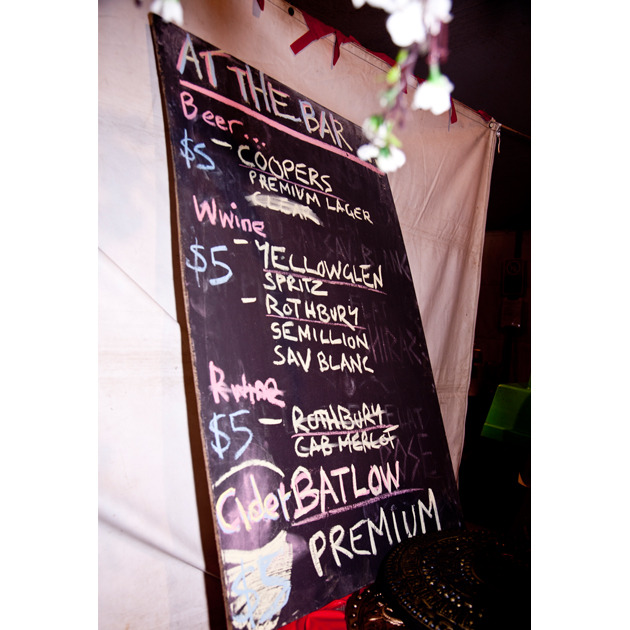 AT THE BAR
Beer...
$5 - COOPERS
PREMIUM LAGER
CLEAR
Wwine
$5 - YELLOWGLEN
SPRITZ
- ROTHBURY
SEMILLION
SAV BLANC
Rwine
$5 - ROTHBURY
CAB MERLOT
Cider BATLOW
PREMIUM
$5